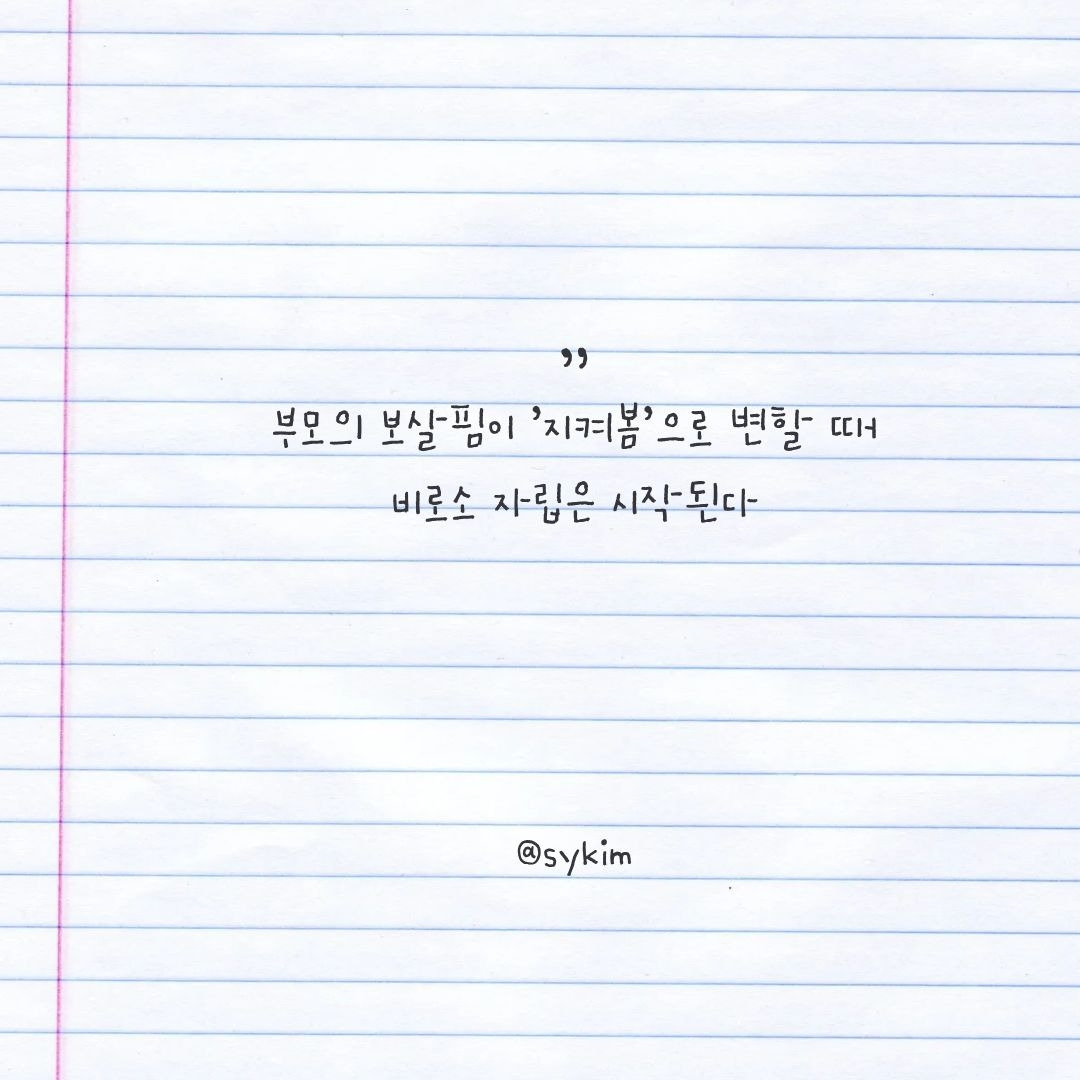 ”
부모의 보살핌이 ’지켜봄’으로 변할 때
비로소 자립은 시작된다
@sykim